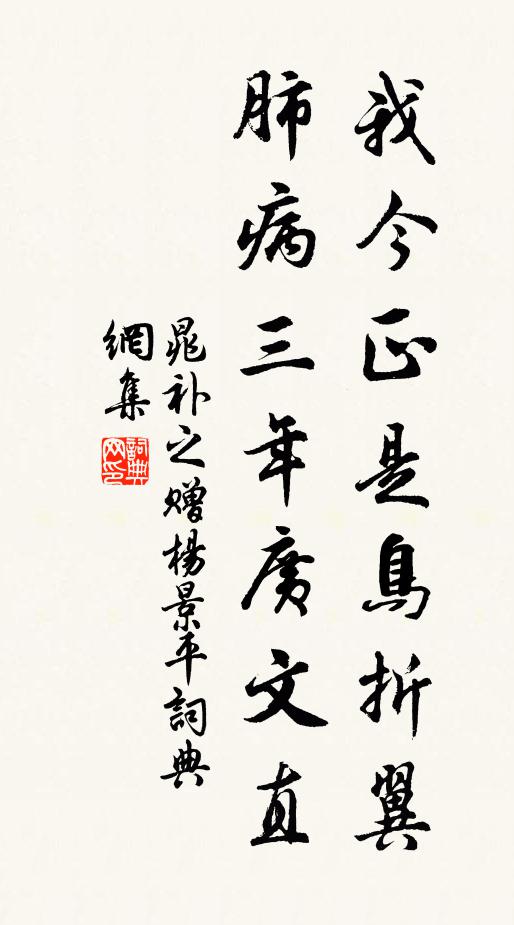 我今正是鳥折翼
肺病三年廣文直
晁補之贈楊景平詞典
網集
詞典網印